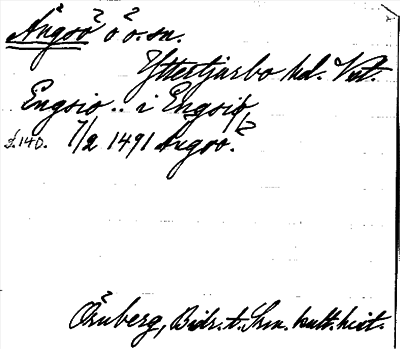 Ängsö ö o. sn.
Yttertjurbo hd. Vstm.
Engsio .. i Engsiø
s. 140. 7/2 1491 Ängsö.
Örnberg, Bidr. t. Svn. kult. hist.